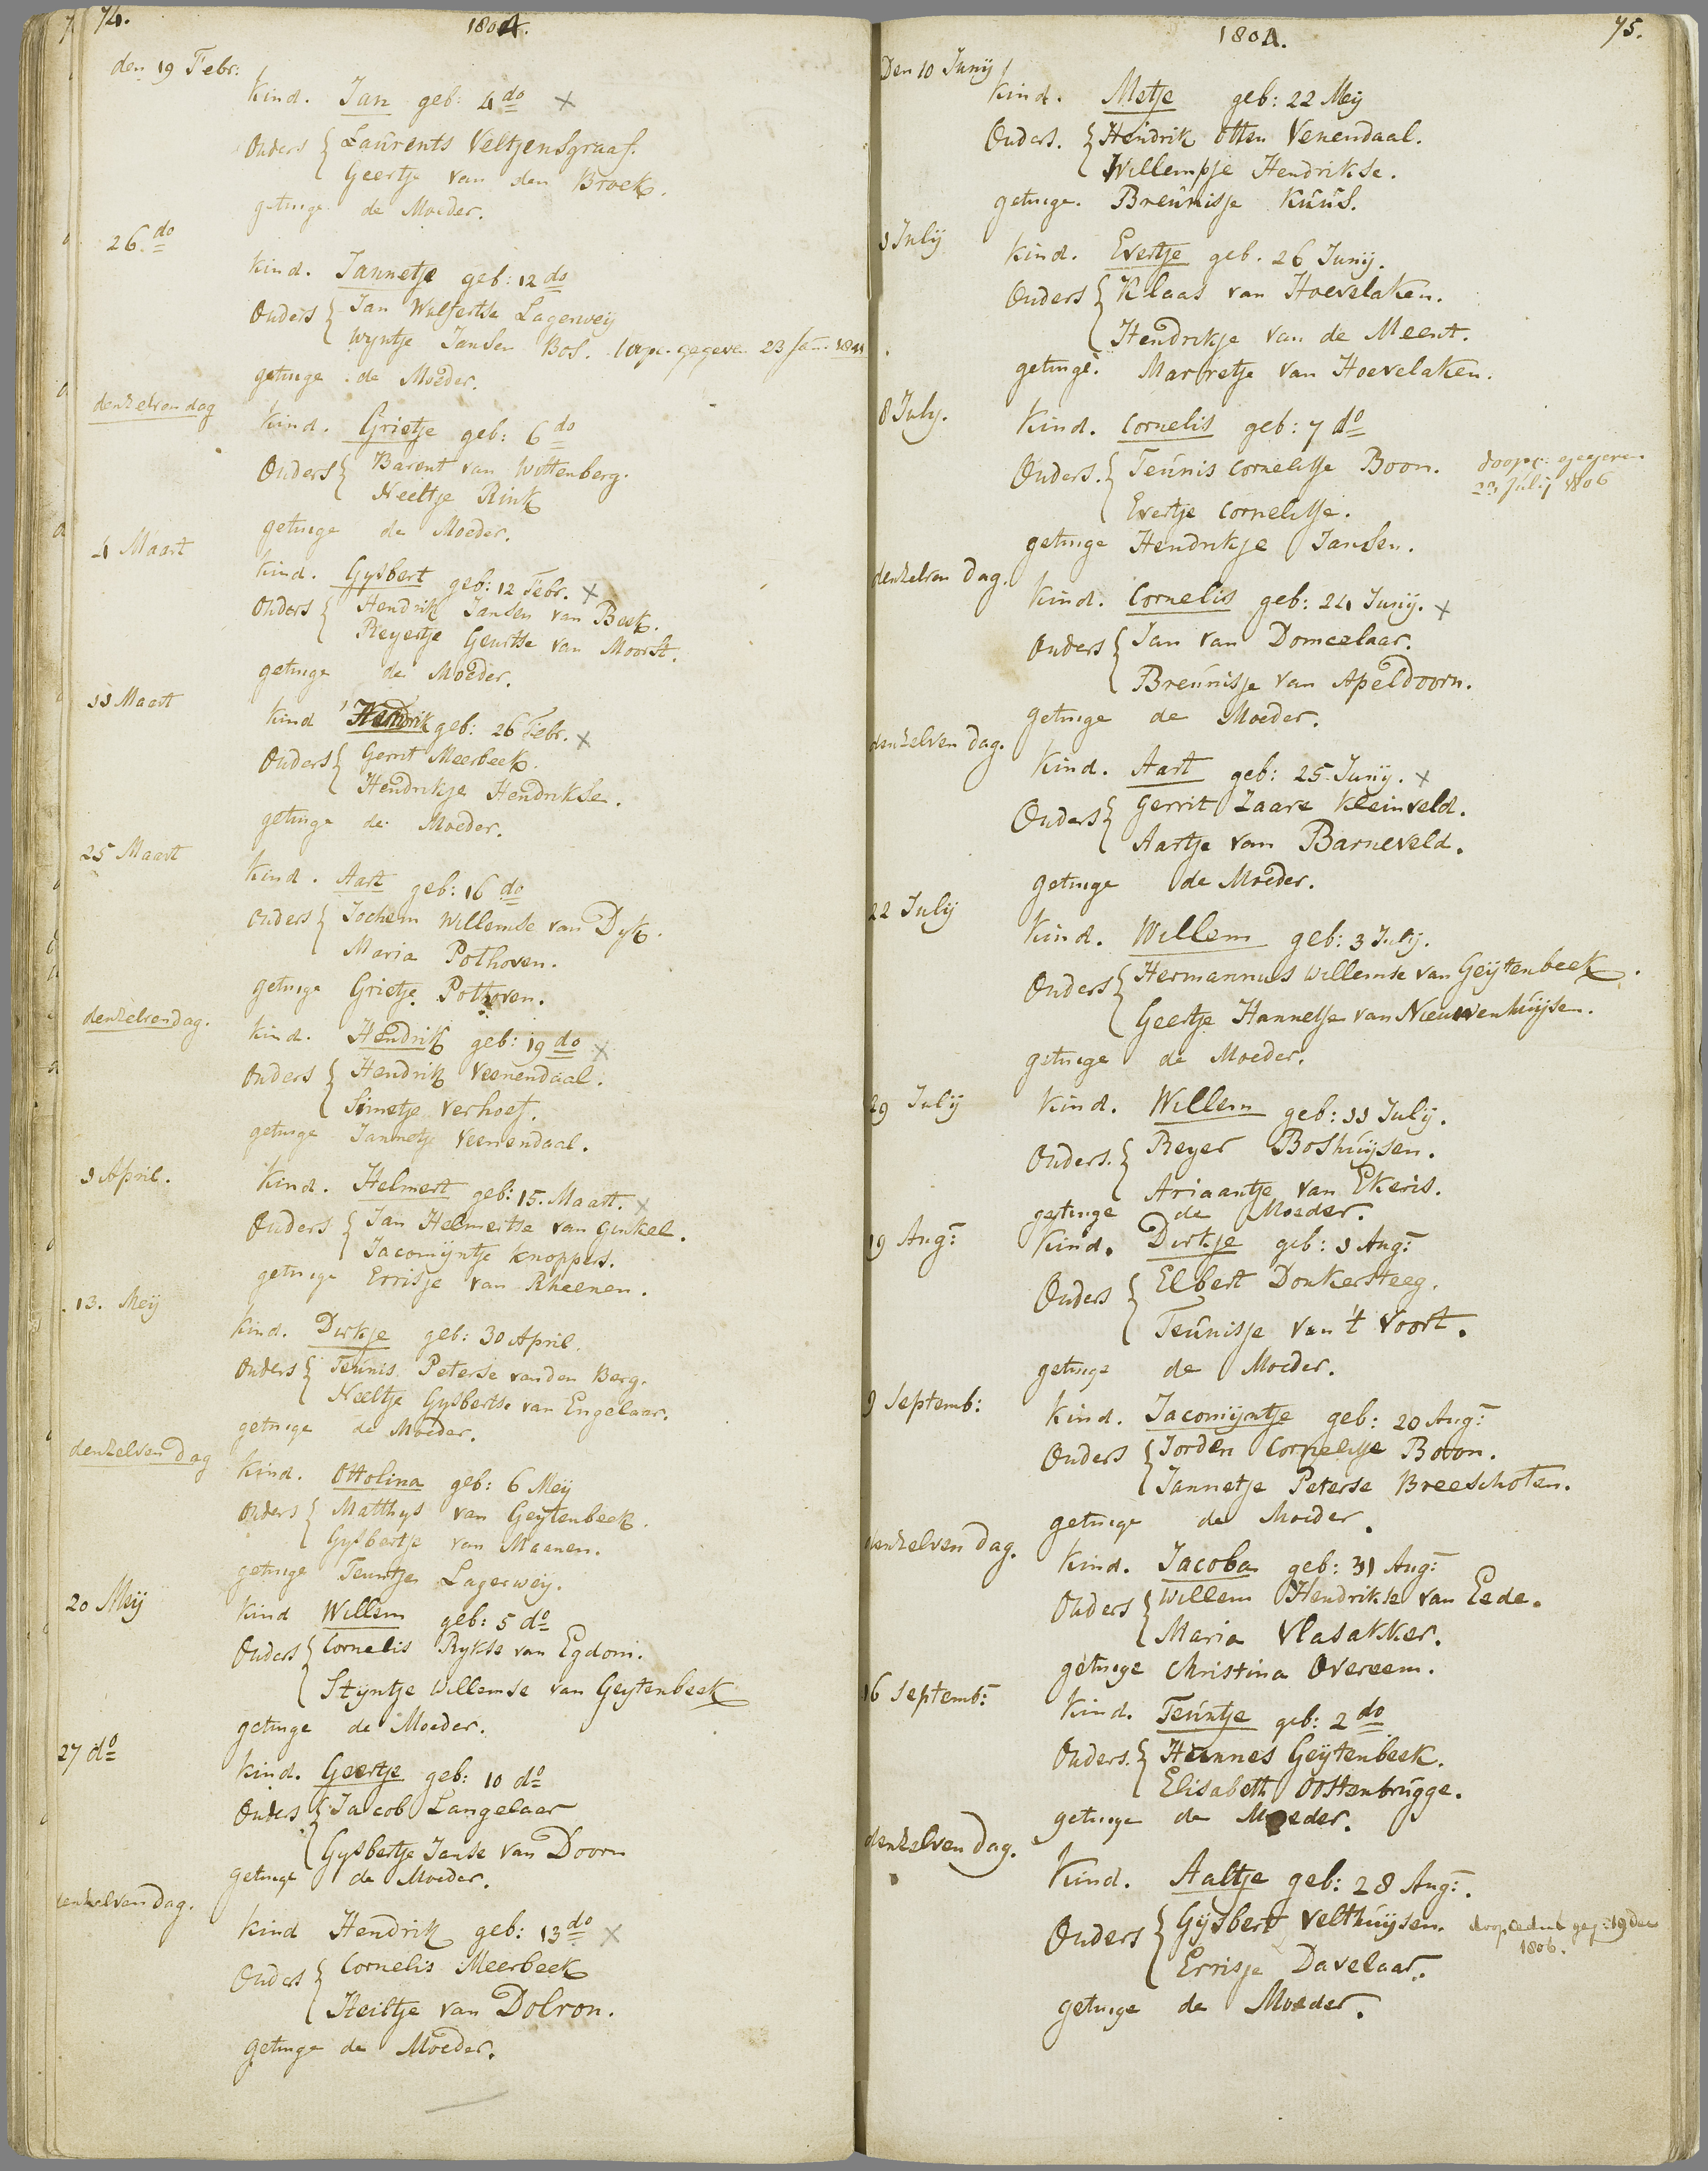 74.
1804.
den 19 Febr:
Kind. Jan geb: 4 do x
Ouders { Laurents Veltjensgraaf.
Geertje van den Broek.
getuige de Moeder.
26. do
Kind. Jannetje geb: 12 do
Ouders { Jan Wulfertse Lagerweij
Wyntje Jansen Bos. gegeven 23 Jan. 1841
getuige de Moeder.
denzelven dag
Kind. Grietje geb: 6 do
Ouders { Barent van Wittenberg.
Neeltje Rink
getuige de Moeder.
4 Maart
Kind. Gysbert geb: 12 Febr. x
Ouders { Hendrik Jansen van Beek.
Reyertje Geurtse van Moorst.
getuige de Moeder.
11 Maart
Kind Hendrik geb: 26 Febr. x
Ouders { Gerrit Meerbeek.
Hendrikje Hendrikse.
getuige de Moeder.
25 Maart
Kind. Aart geb: 16 do
Ouders { Jochem Willemse van Dyk.
Maria Pothoven.
getuige Grietje Pothoven.
denzelven dag.
Kind. Hendrik geb: 19 do x
Ouders { Hendrik Veenendaal.
Simetje Verhoef.
getuige Jannetje Veenendaal.
1 April.
Kind. Helmert geb: 15. Maart. x
Ouders { Jan Helmertse van Ginkel.
Jacomijntje Knoppers.
getuige Errisje van Rheenen.
13. Meij
Kind. Dirkje geb: 30 April.
Ouders { Teunis Peterse van den Berg.
Neeltje Gysbertse van Engelaar.
getuige de Moeder.
denzelven dag
Kind. Ottolina geb: 6 Meij
Ouders { Matthys van Geytenbeek.
Gysbertje van Maanen.
getuige Teuntje Lagerweij.
20 Meij
Kind Willem geb: 5 do
Ouders { Cornelis Rykse van Egdom.
Styntje Willemse van Geytenbeek
getuige de Moeder.
27 do
Kind. Geertje geb: 10 do
Ouders { Jacob Langelaar
Gysbertje Janse van Doorn
getuige de Moeder.
denzelven dag.
Kind Hendrik geb: 13 do x
Ouders { Cornelis Meerbeek
Heiltje van Dolron.
getuige de Moeder.
1804.
75.
Den 10 Junij
Kind. Metje geb: 22 Meij
Ouders. { Hendrik Otten Venendaal.
Willempje Hendrikse.
getuige. Breunisje Kuus.
1 Julij
Kind. Evertje geb. 26 Junij.
Ouders { Klaas van Hoevelaken.
Hendrikje van de Meent.
getuige. Marretje van Hoevelaken.
8 July.
Kind. Cornelis geb: 7 do
Ouders. { Teunis Cornelisse Boon. doopc: gegeven
23 Julij 1806
Evertje Cornelisse.
getuige Hendrikje Jansen.
denzelven dag.
Kind. Cornelis geb: 24 Junij. x
Ouders { Jan van Domselaar.
Breunisje van Apeldoorn.
getuige de Moeder.
denzelven dag.
Kind. Aart geb: 25 Junij. x
Ouders { Gerrit Zaare Kleinveld.
Aartje van Barneveld.
getuige de Moeder.
22 Julij
Kind. Willem geb: 3 Julij.
Ouders { Hermannus Willemse van Geijtenbeek.
Geertje Hannesse van Nieuwenhuijsen.
getuige de Moeder.
29 Julij
Kind. Willem geb: 11 Julij.
Ouders. { Reyer Boshuijsen.
Ariaantje van Ekeris.
getuige de Moeder.
19 Aug:
Kind. Dirkje geb: 1 Aug:
Ouders { Elbert Donkersteeg.
Teunisje van 't Voort.
getuige de Moeder.
9 Septemb:
Kind. Jacomijntje geb: 20 Aug:
Ouders { Jorden Cornelisse Boon.
Jannetje Peterse Breeschoten.
getuige de Moeder.
denzelven dag.
Kind. Jacoba geb: 31 Aug:
Ouders { Willem Hendrikse van Eede.
Maria Vlasakker.
getuige Christina Overeem.
16 Septemb:
Kind. Teuntje geb: 2 do
Ouders. { Hannes Geijtenbeek.
Elisabeth Oostenbrugge.
getuige de Moeder.
denzelven dag.
Kind. Aaltje geb: 28 Aug:.
Ouders { Gijsbert Velthuijsen. doopcedul geg: 19 Dec
1806.
Errisje Davelaar.
getuige de Moeder.